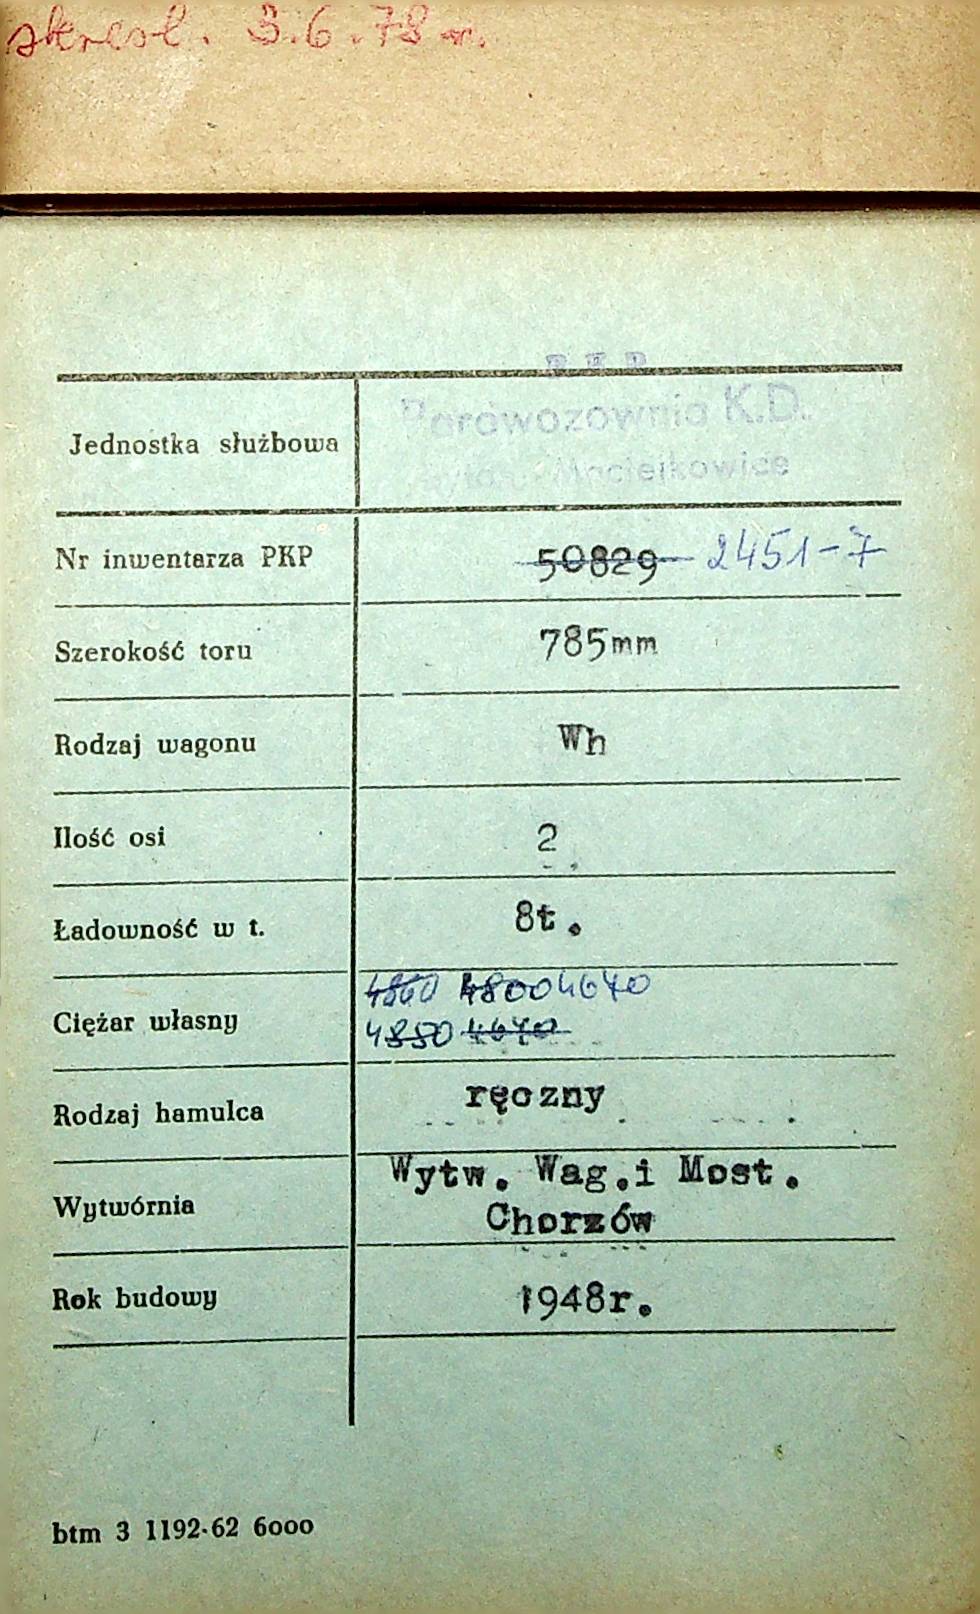 skreśl. 3.6.78 r.
P K P
Parowozownia K.D.
Maciejkowice
Jednostka służbowa
Nr inwentarza PKP 50829 2451-7
Szerokość toru 785mm
Rodzaj wagonu Wh
Ilość osi 2
Ładowność w t. 8t.
4860 4800 4640
Ciężar własny
4850 4640
Rodzaj hamulca ręczny
Wytw. Wag.i Most.
Wytwórnia
Chorzów
Rok budowy 1948r.
btm 3 1192-62 6000